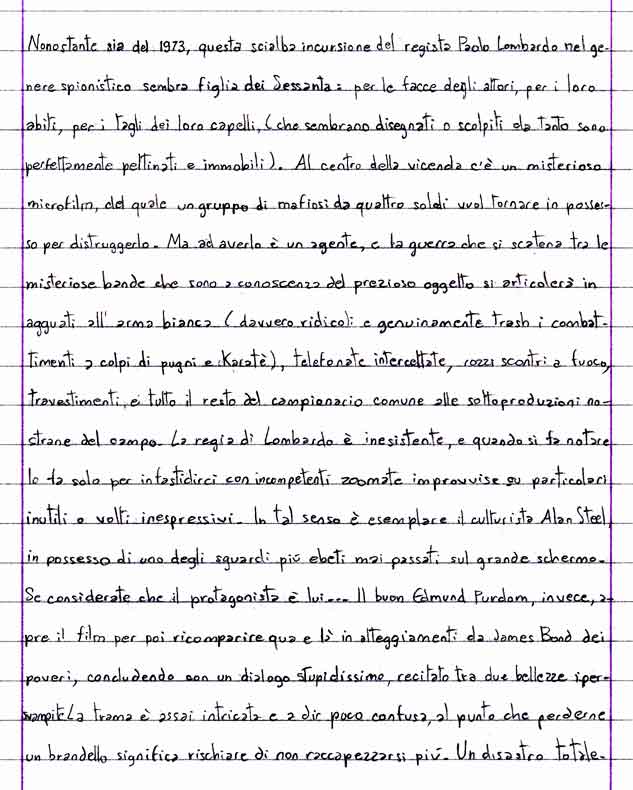 Nonostante sia del 1973, questa scialba incursione del regista Paolo Lombardo nel ge-
nere spionistico sembra figlia dei Sessanta: per le facce degli attori, per i loro
abiti, per i tagli dei loro capelli, (che sembrano disegnati o scolpiti da tanto sono
perfettamente pettinati e immobili). Al centro della vicenda c'è un misterioso
microfilm, del quale un gruppo di mafiosi da quattro soldi vuol tornare in posses-
so per distruggerlo. Ma ad averlo è un agente, e la guerra che si scatena tra le
misteriose bande che sono a conoscenza del prezioso oggetto si articolerà in
agguati all'arma bianca (davvero ridicoli e genuinamente trash i combat-
timenti a colpi di pugni e Karatè), telefonate intercettate, rozzi scontri a fuoco,
travestimenti, e tutto il resto del campionario comune alle sottoproduzioni no-
strane del campo. La regia di Lombardo è inesistente, e quando si fa notare
lo fa solo per infastidirci con incompetenti zoomate improvvise su particolari
inutili o volti inespressivi. In tal senso è esemplare il culturista Alan Steel,
in possesso di uno degli sguardi più ebeti mai passati sul grande schermo.
Se considerate che il protagonista è lui... Il buon Edmund Purdom, invece, a-
pre il film per poi ricomparire qua e là in atteggiamenti da James Bond dei
poveri, concludendo con un dialogo stupidissimo, recitato tra due bellezze iper-
svampite. La trama è assai intricata e a dir poco confusa, al punto che perderne
un brandello significa rischiare di non raccapezzarsi più. Un disastro totale.